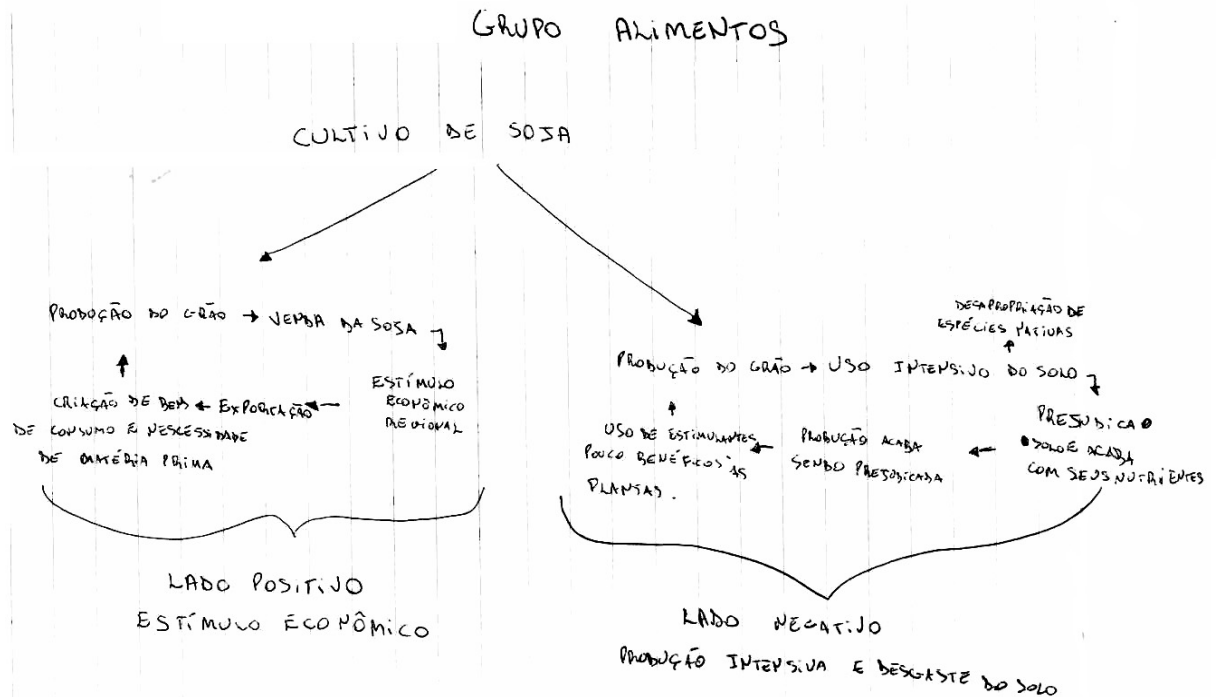 GRUPO ALIMENTOS
CULTIVO DE SOJA
PRODUÇÃO DO GRÃO → VENDA DA SOJA
ESTÍMULO
ECONÔMICO
REGIONAL
CRIAÇÃO DE BEM ← EXPORTAÇÃO ←
DE CONSUMO E NESCESSIDADE
DE MATÉRIA PRIMA
LADO POSITIVO
ESTÍMULO ECONÔMICO
DESAPROPRIAÇÃO DE
ESPÉCIES NATIVAS
PRODUÇÃO DO GRÃO → USO INTENSIVO DO SOLO
PREJUDICA O
SOLO E ACABA
COM SEUS NUTRIENTES
PRODUÇÃO ACABA
SENDO PREJUDICADA
USO DE ESTIMULANTES
POUCO BENÉFICOS ÀS
PLANTAS.
LADO NEGATIVO
PRODUÇÃO INTENSIVA E DESGASTE DO SOLO